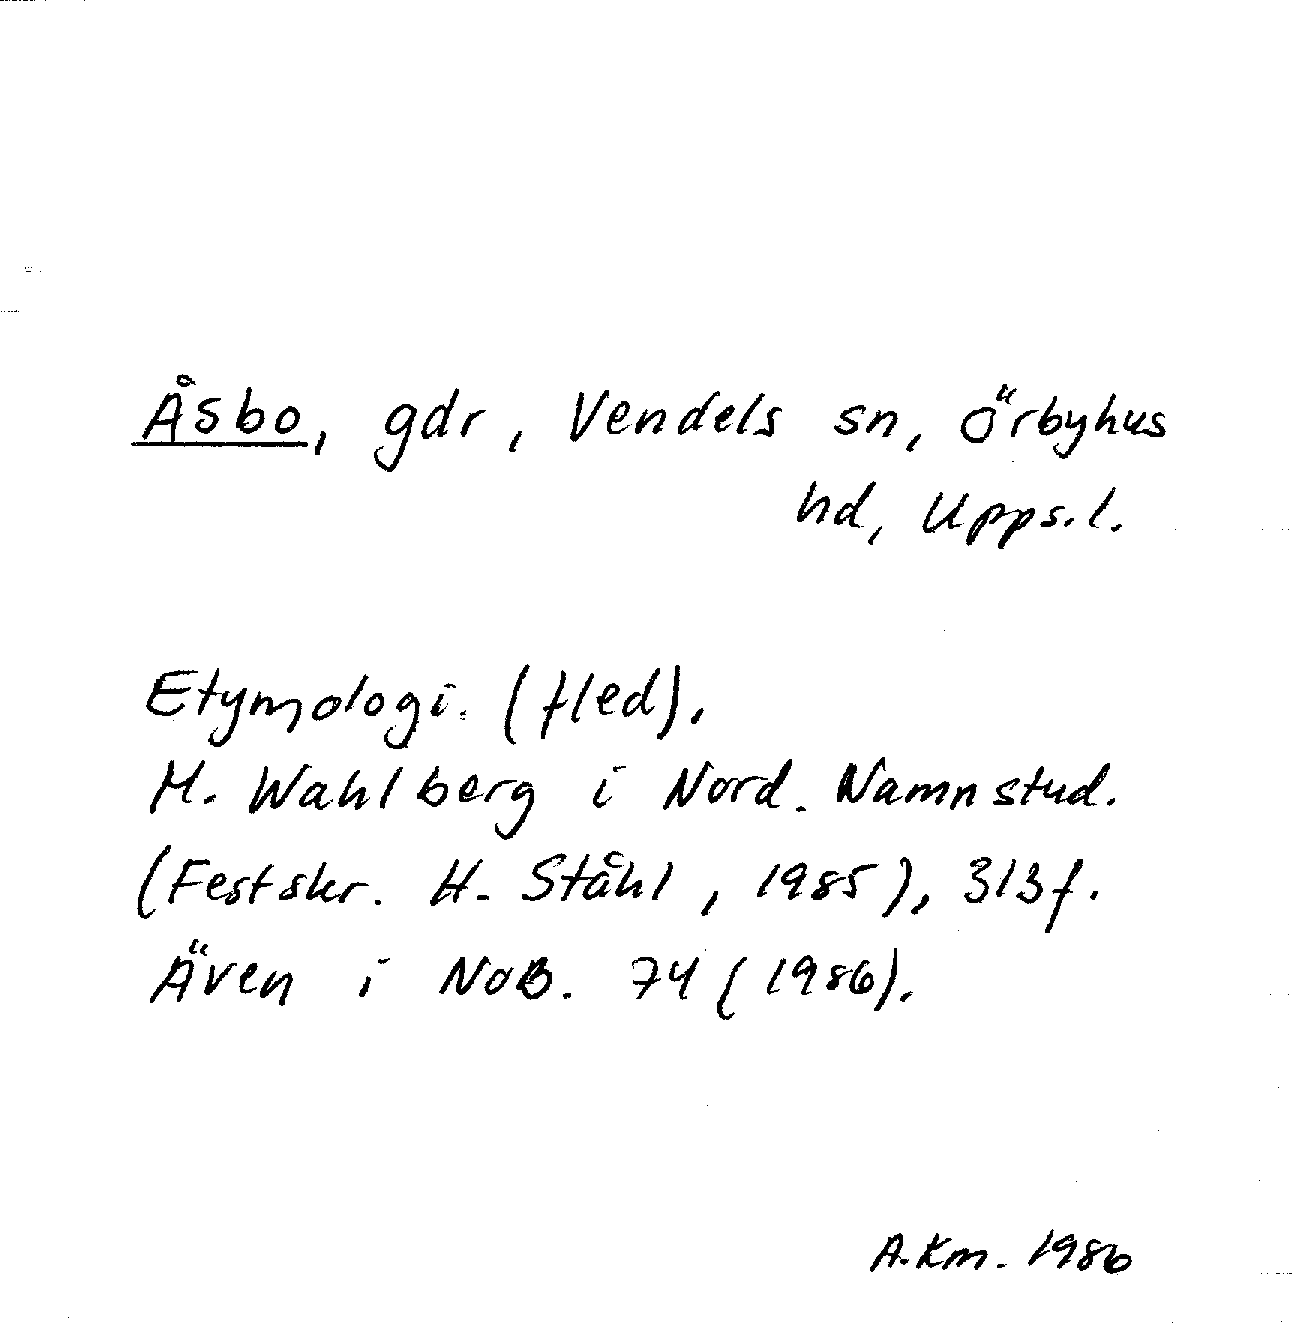 Åsbo, gdr, Vendels sn, Örbyhus
hd, Upps.l.
Etymologi. (fled).
M. Wahlberg i Nord. Namnstud.
(Festskr. H. Ståhl, 1985), 313f.
Även i NoB. 74 (1986).
A.Km. 1986